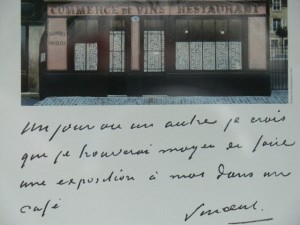 COMMERCE DE VINS RESTAURANT
Un jour ou un autre je crois
que je trouverai moyen de faire
une exposition à moi dans un
café
Vincent.